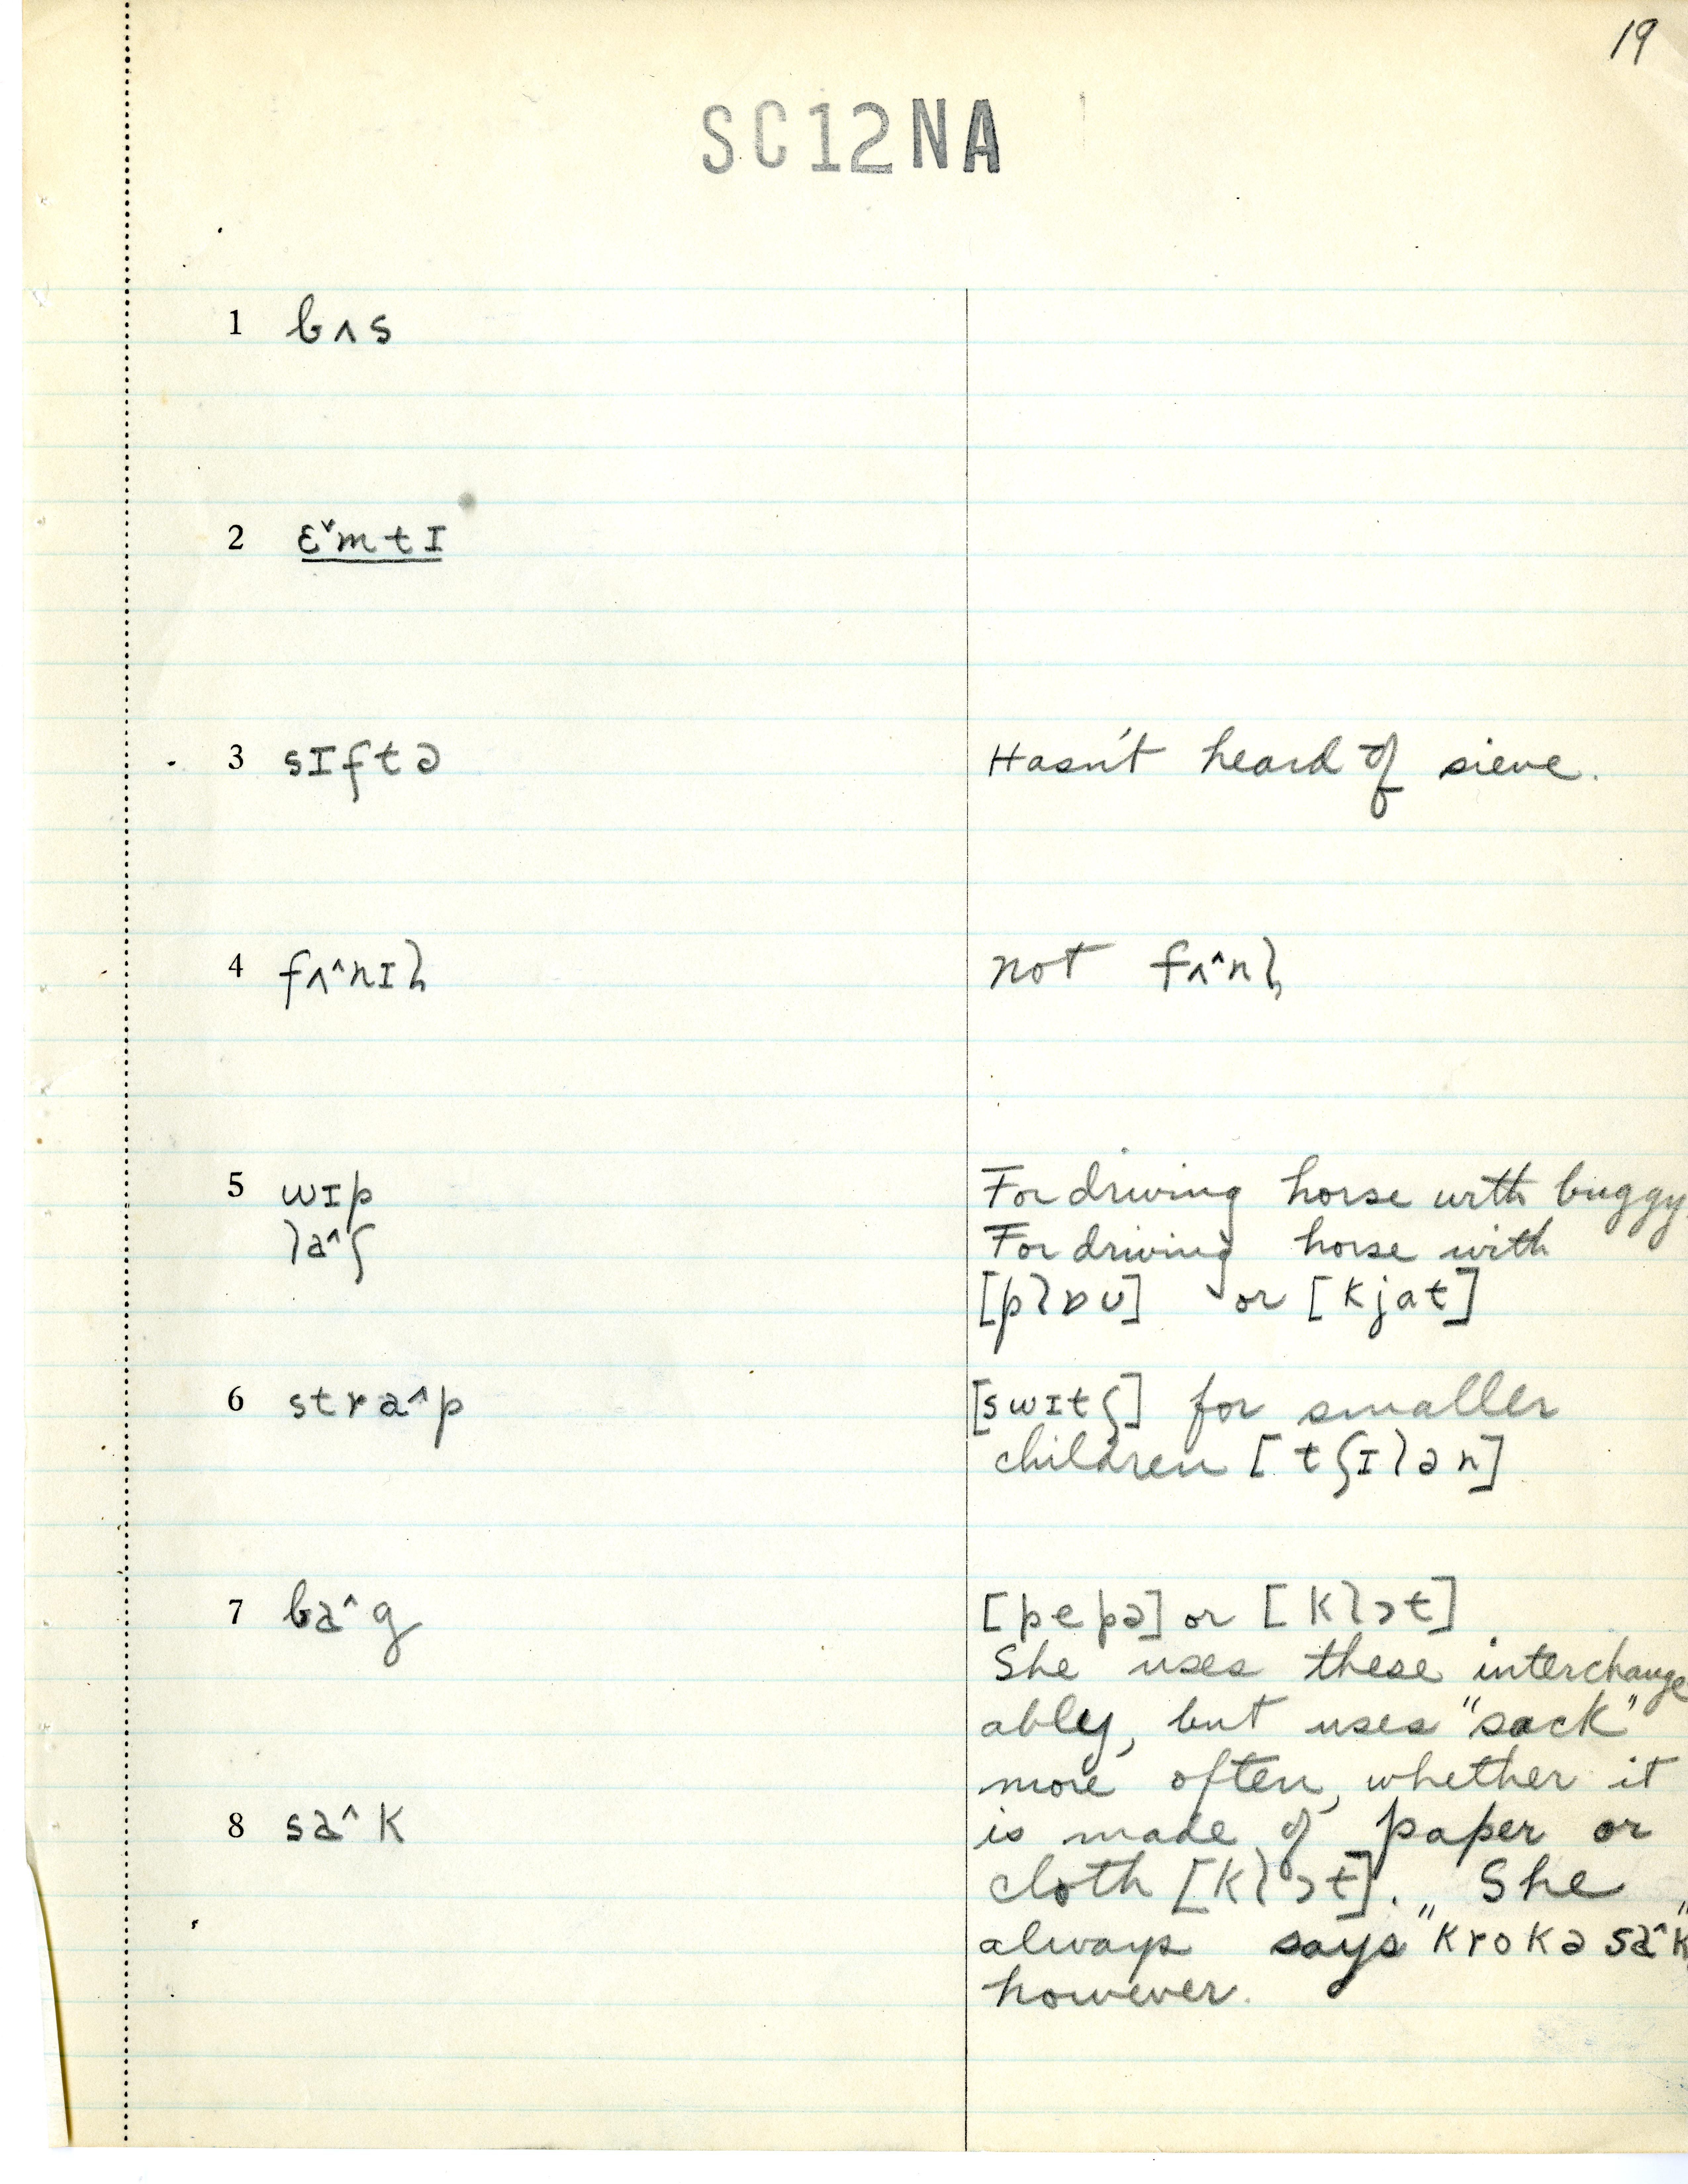 19
SC12NA
1 bʌs
2 ɛ˅mtɪ
3 sɪftə Hasn't heard of sieve.
4 fʌ˄nɪɫ not fʌ˄nɫ̩
5 wɪp For driving horse with buggy.
ɫa˄ʃ For driving horse with
[pɫɒʊ] or [kjat]
6 stra˄p [swɪtʃ] for smaller
children [tʃɪɫən]
7 ba˄g [pepə] or [kɫɔt]
She uses these interchange
ably, but uses "sack"
more often, whether it
8 sa˄k is made of paper or
cloth [kɫɔt]. She
always says "krokə sa˄k"
however.